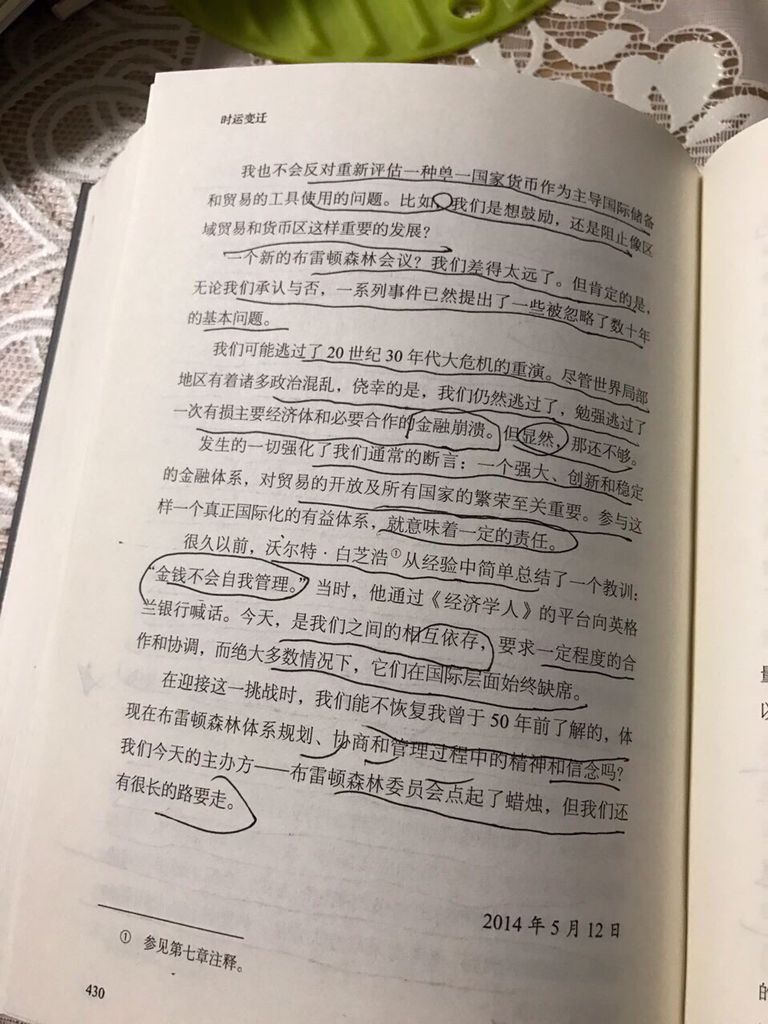 时运变迁
我也不会反对重新评估一种单一国家货币作为主导国际储备
和贸易的工具使用的问题。比如，我们是想鼓励，还是阻止像区
域贸易和货币区这样重要的发展？
一个新的布雷顿森林会议？我们差得太远了。但肯定的是，
无论我们承认与否，一系列事件已然提出了一些被忽略了数十年
的基本问题。
我们可能逃过了 20 世纪 30 年代大危机的重演。尽管世界局部
地区有着诸多政治混乱，侥幸的是，我们仍然逃过了，勉强逃过了
一次有损主要经济体和必要合作的金融崩溃。但显然，那还不够。
发生的一切强化了我们通常的断言：一个强大、创新和稳定
的金融体系，对贸易的开放及所有国家的繁荣至关重要。参与这
样一个真正国际化的有益体系，就意味着一定的责任。
很久以前，沃尔特·白芝浩①从经验中简单总结了一个教训：
“金钱不会自我管理。”当时，他通过《经济学人》的平台向英格
兰银行喊话。今天，是我们之间的相互依存，要求一定程度的合
作和协调，而绝大多数情况下，它们在国际层面始终缺席。
在迎接这一挑战时，我们能不恢复我曾于 50 年前了解的，体
现在布雷顿森林体系规划、协商和管理过程中的精神和信念吗？
我们今天的主办方——布雷顿森林委员会点起了蜡烛，但我们还
有很长的路要走。
2014 年 5 月 12 日
① 参见第七章注释。
430